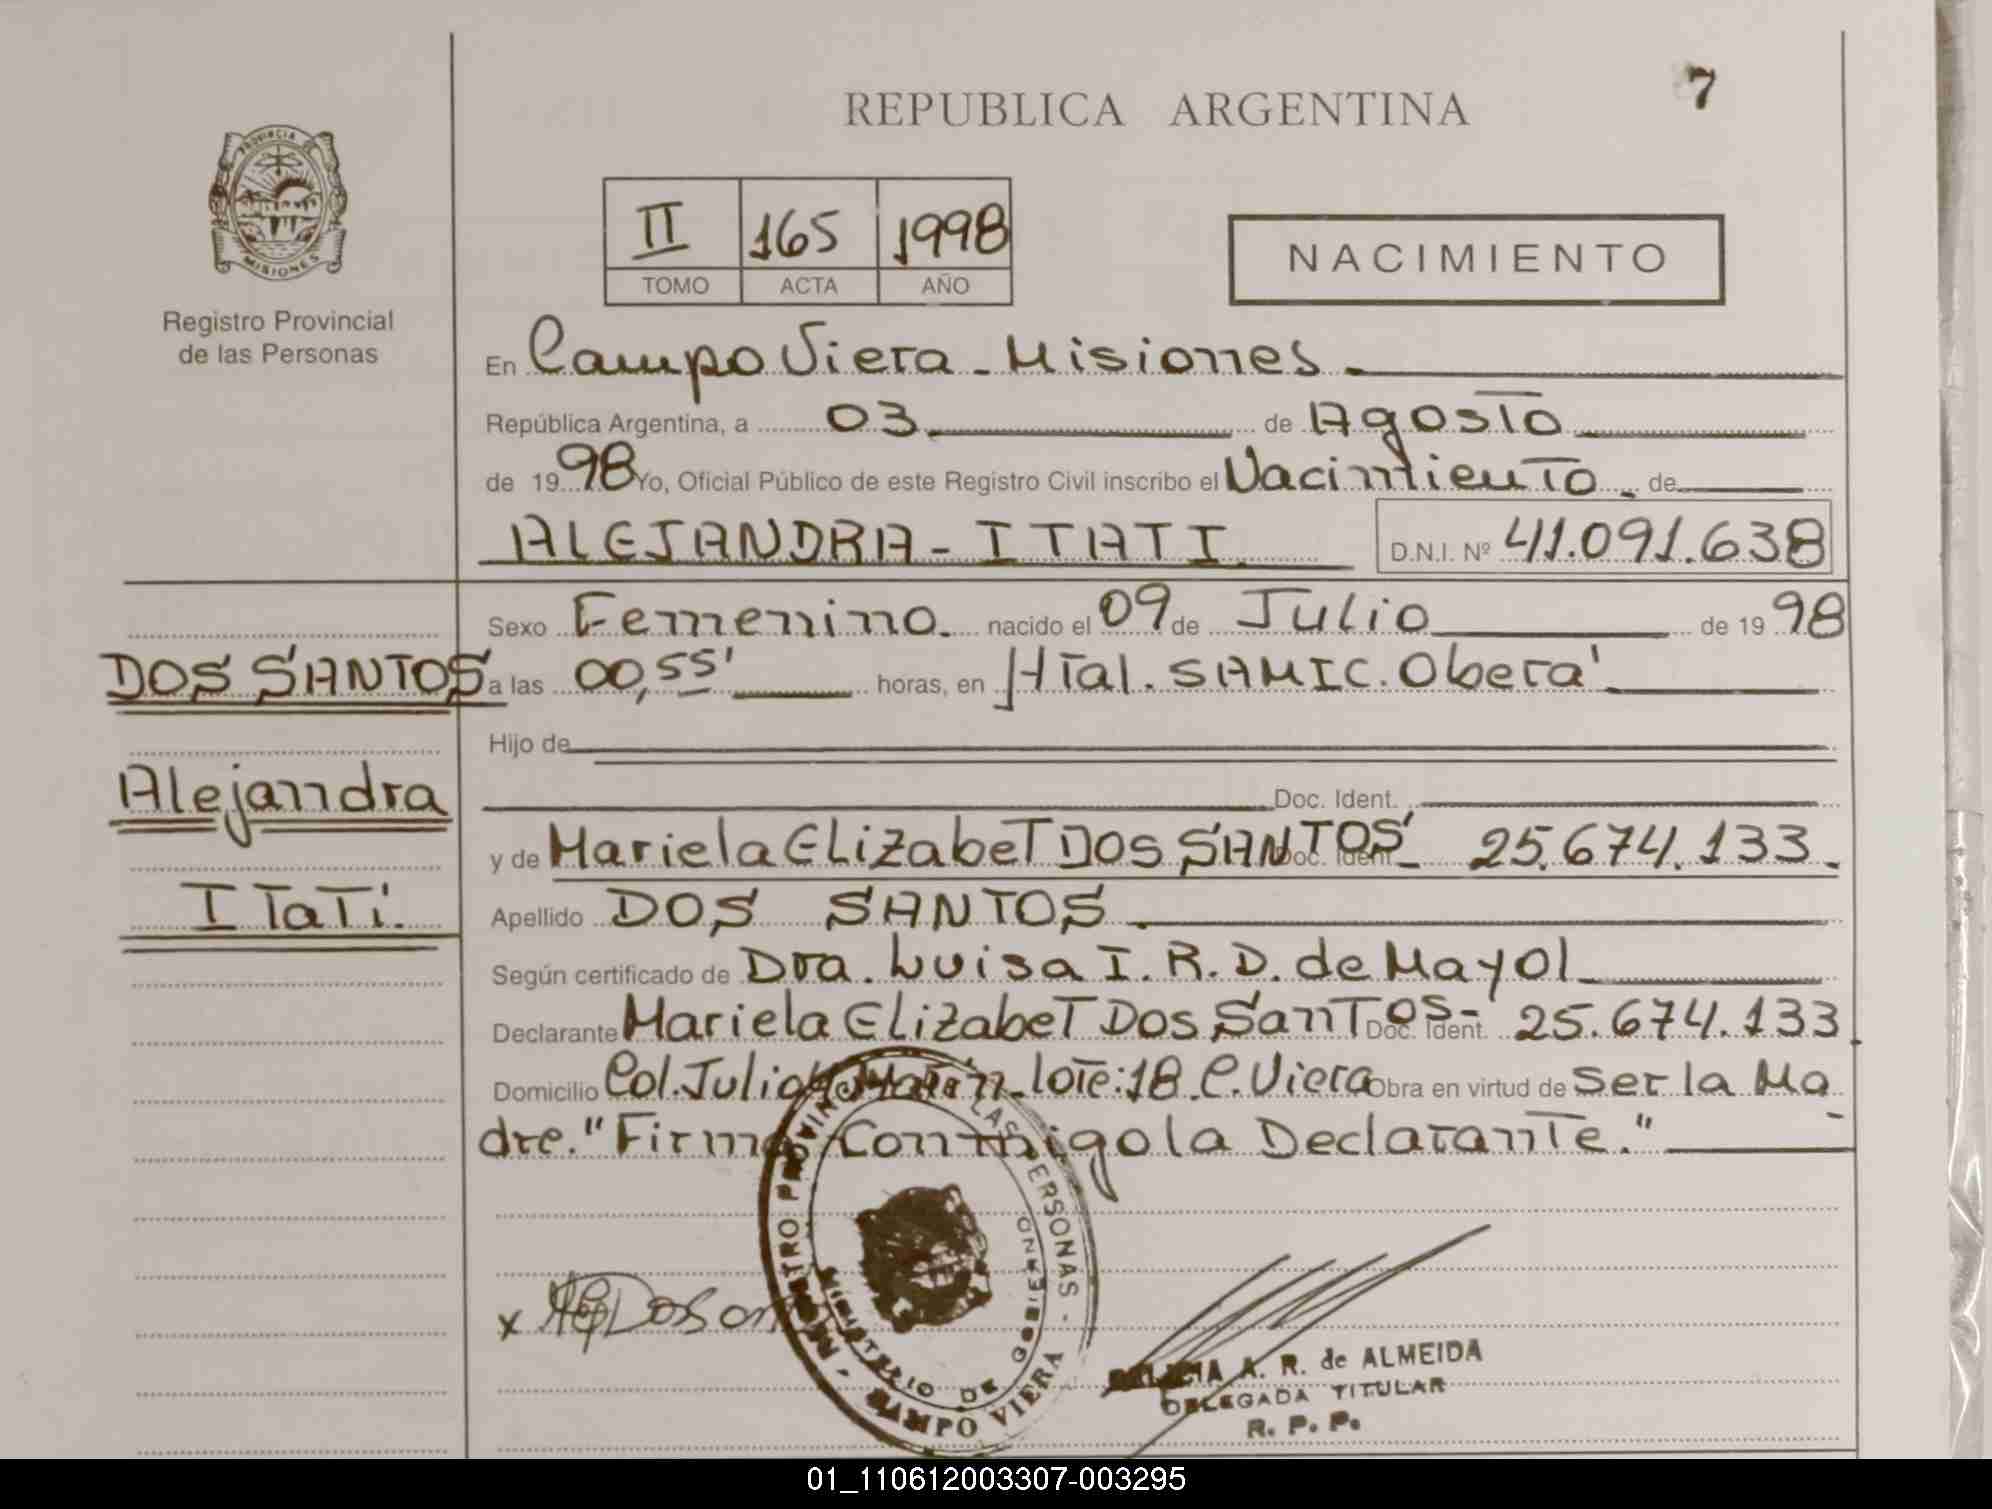 REPUBLICA ARGENTINA
7
PROVINCIA DE
MISIONES
Registro Provincial
de las Personas
II 165 1998
TOMO ACTA AÑO
NACIMIENTO
En Campo Viera - Misiones.
República Argentina, a 03 de Agosto
de 1998 Yo, Oficial Público de este Registro Civil inscribo el Nacimiento. de
ALEJANDRA - ITATI. D.N.I. Nº 41.091.638
Sexo Femenino. nacido el 09 de Julio de 1998
DOS SANTOS
a las 00,55' horas, en Htal. SAMIC. Oberá
Hijo de
Alejandra
Doc. Ident.
y de Mariela Elizabet DOS SANTOS Doc. Ident. 25.674.133.
Itatí.
Apellido DOS SANTOS.
Según certificado de Dra. Luisa I. R. D. de Mayol
Declarante Mariela Elizabet Dos Santos- Doc. Ident. 25.674.133.
Domicilio Col. Julio Martín. lote: 18. C. Viera Obra en virtud de Ser la Ma
dre. "Firma Conmigo la Declarante."
REGISTRO PROVINCIAL DE LAS PERSONAS - CAMPO VIERA -
MINISTERIO DE GOBIERNO
x
A. R. de ALMEIDA
DELEGADA TITULAR
R. P. P.
01_110612003307-003295